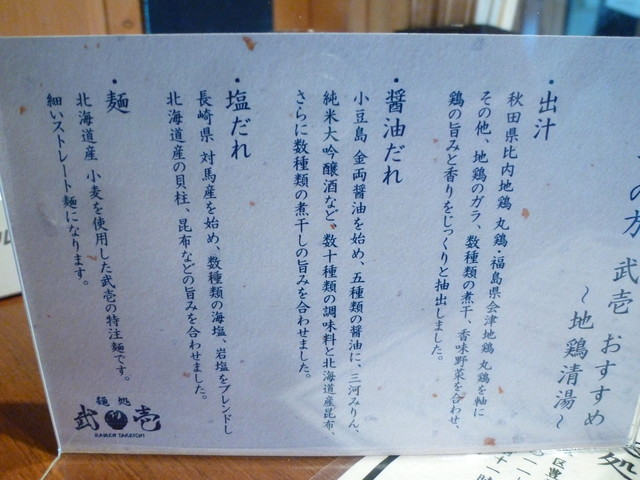 の方 武壱 おすすめ
〜地鶏清湯〜
・出汁
秋田県比内地鶏 丸鶏・福島県会津地鶏 丸鶏を軸に
その他、地鶏のガラ、数種類の煮干、香味野菜を合わせ、
鶏の旨みと香りをじっくりと抽出しました。
・醤油だれ
小豆島 金両醤油を始め、五種類の醤油に、三河みりん、
純米大吟醸酒など、数十種類の調味料と北海道産昆布、
さらに数種類の煮干しの旨みを合わせました。
・塩だれ
長崎県 対馬産を始め、数種類の海塩、岩塩をブレンドし
北海道産の貝柱、昆布などの旨みを合わせました。
・麺
北海道産 小麦を使用した武壱の特注麺です。
細いストレート麺になります。
麺処
武壱
RAMEN TAKEICHI
処
区豊